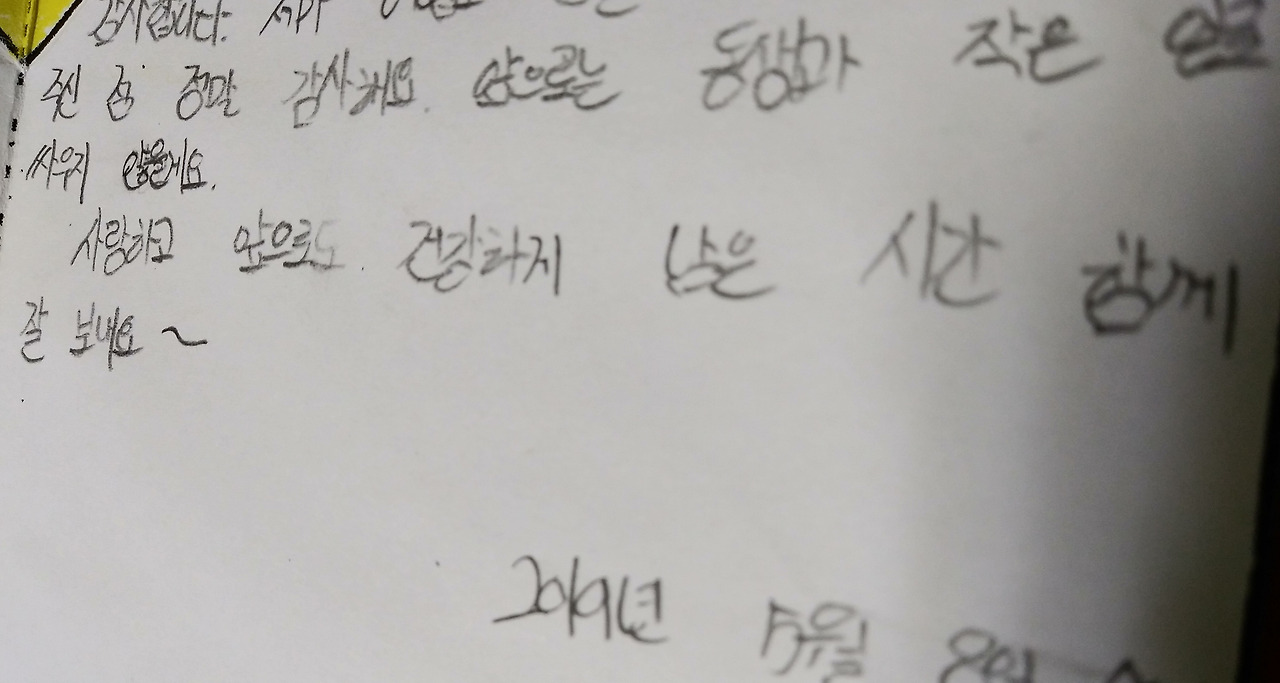 감사합니다. 제가
주신 점 정말 감사해요. 앞으로는 동생과 작은 일로
싸우지 않을게요.
사랑하고 앞으로도 건강하지 남은 시간 함께
잘 보내요~
2019년 5월 8일